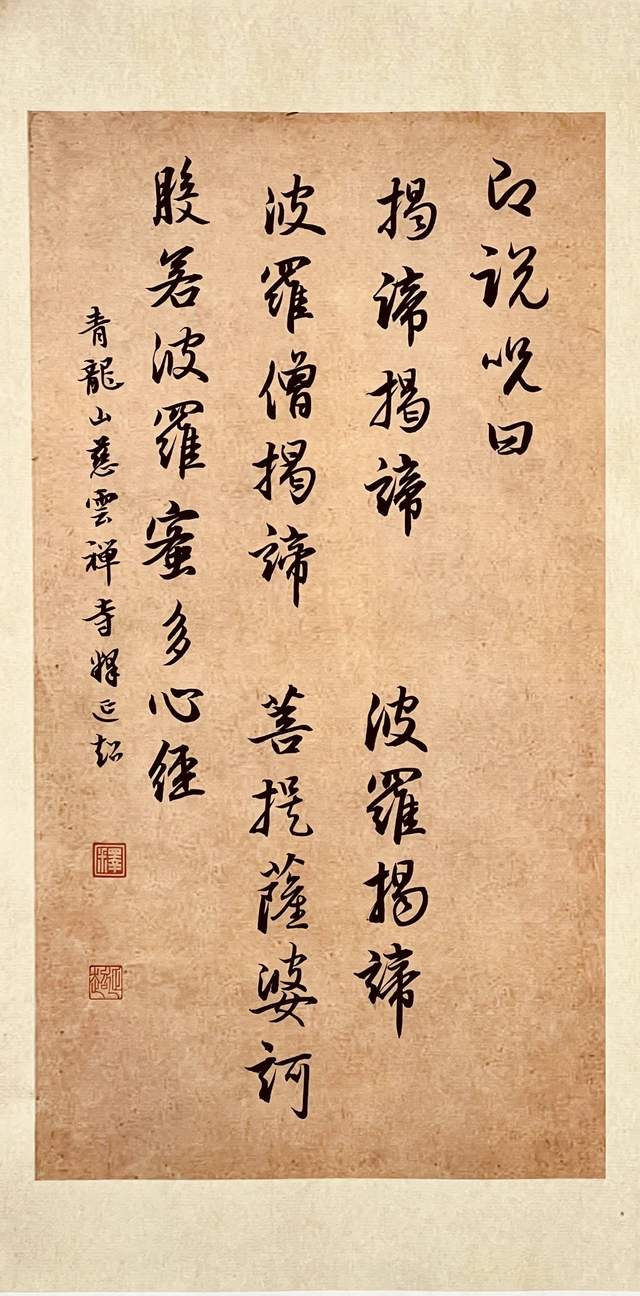 即说呪曰
揭諦揭諦 波羅揭諦
波羅僧揭諦 菩提薩婆訶
般若波羅蜜多心經
青龍山慈雲禅寺釋延超
釋
延超